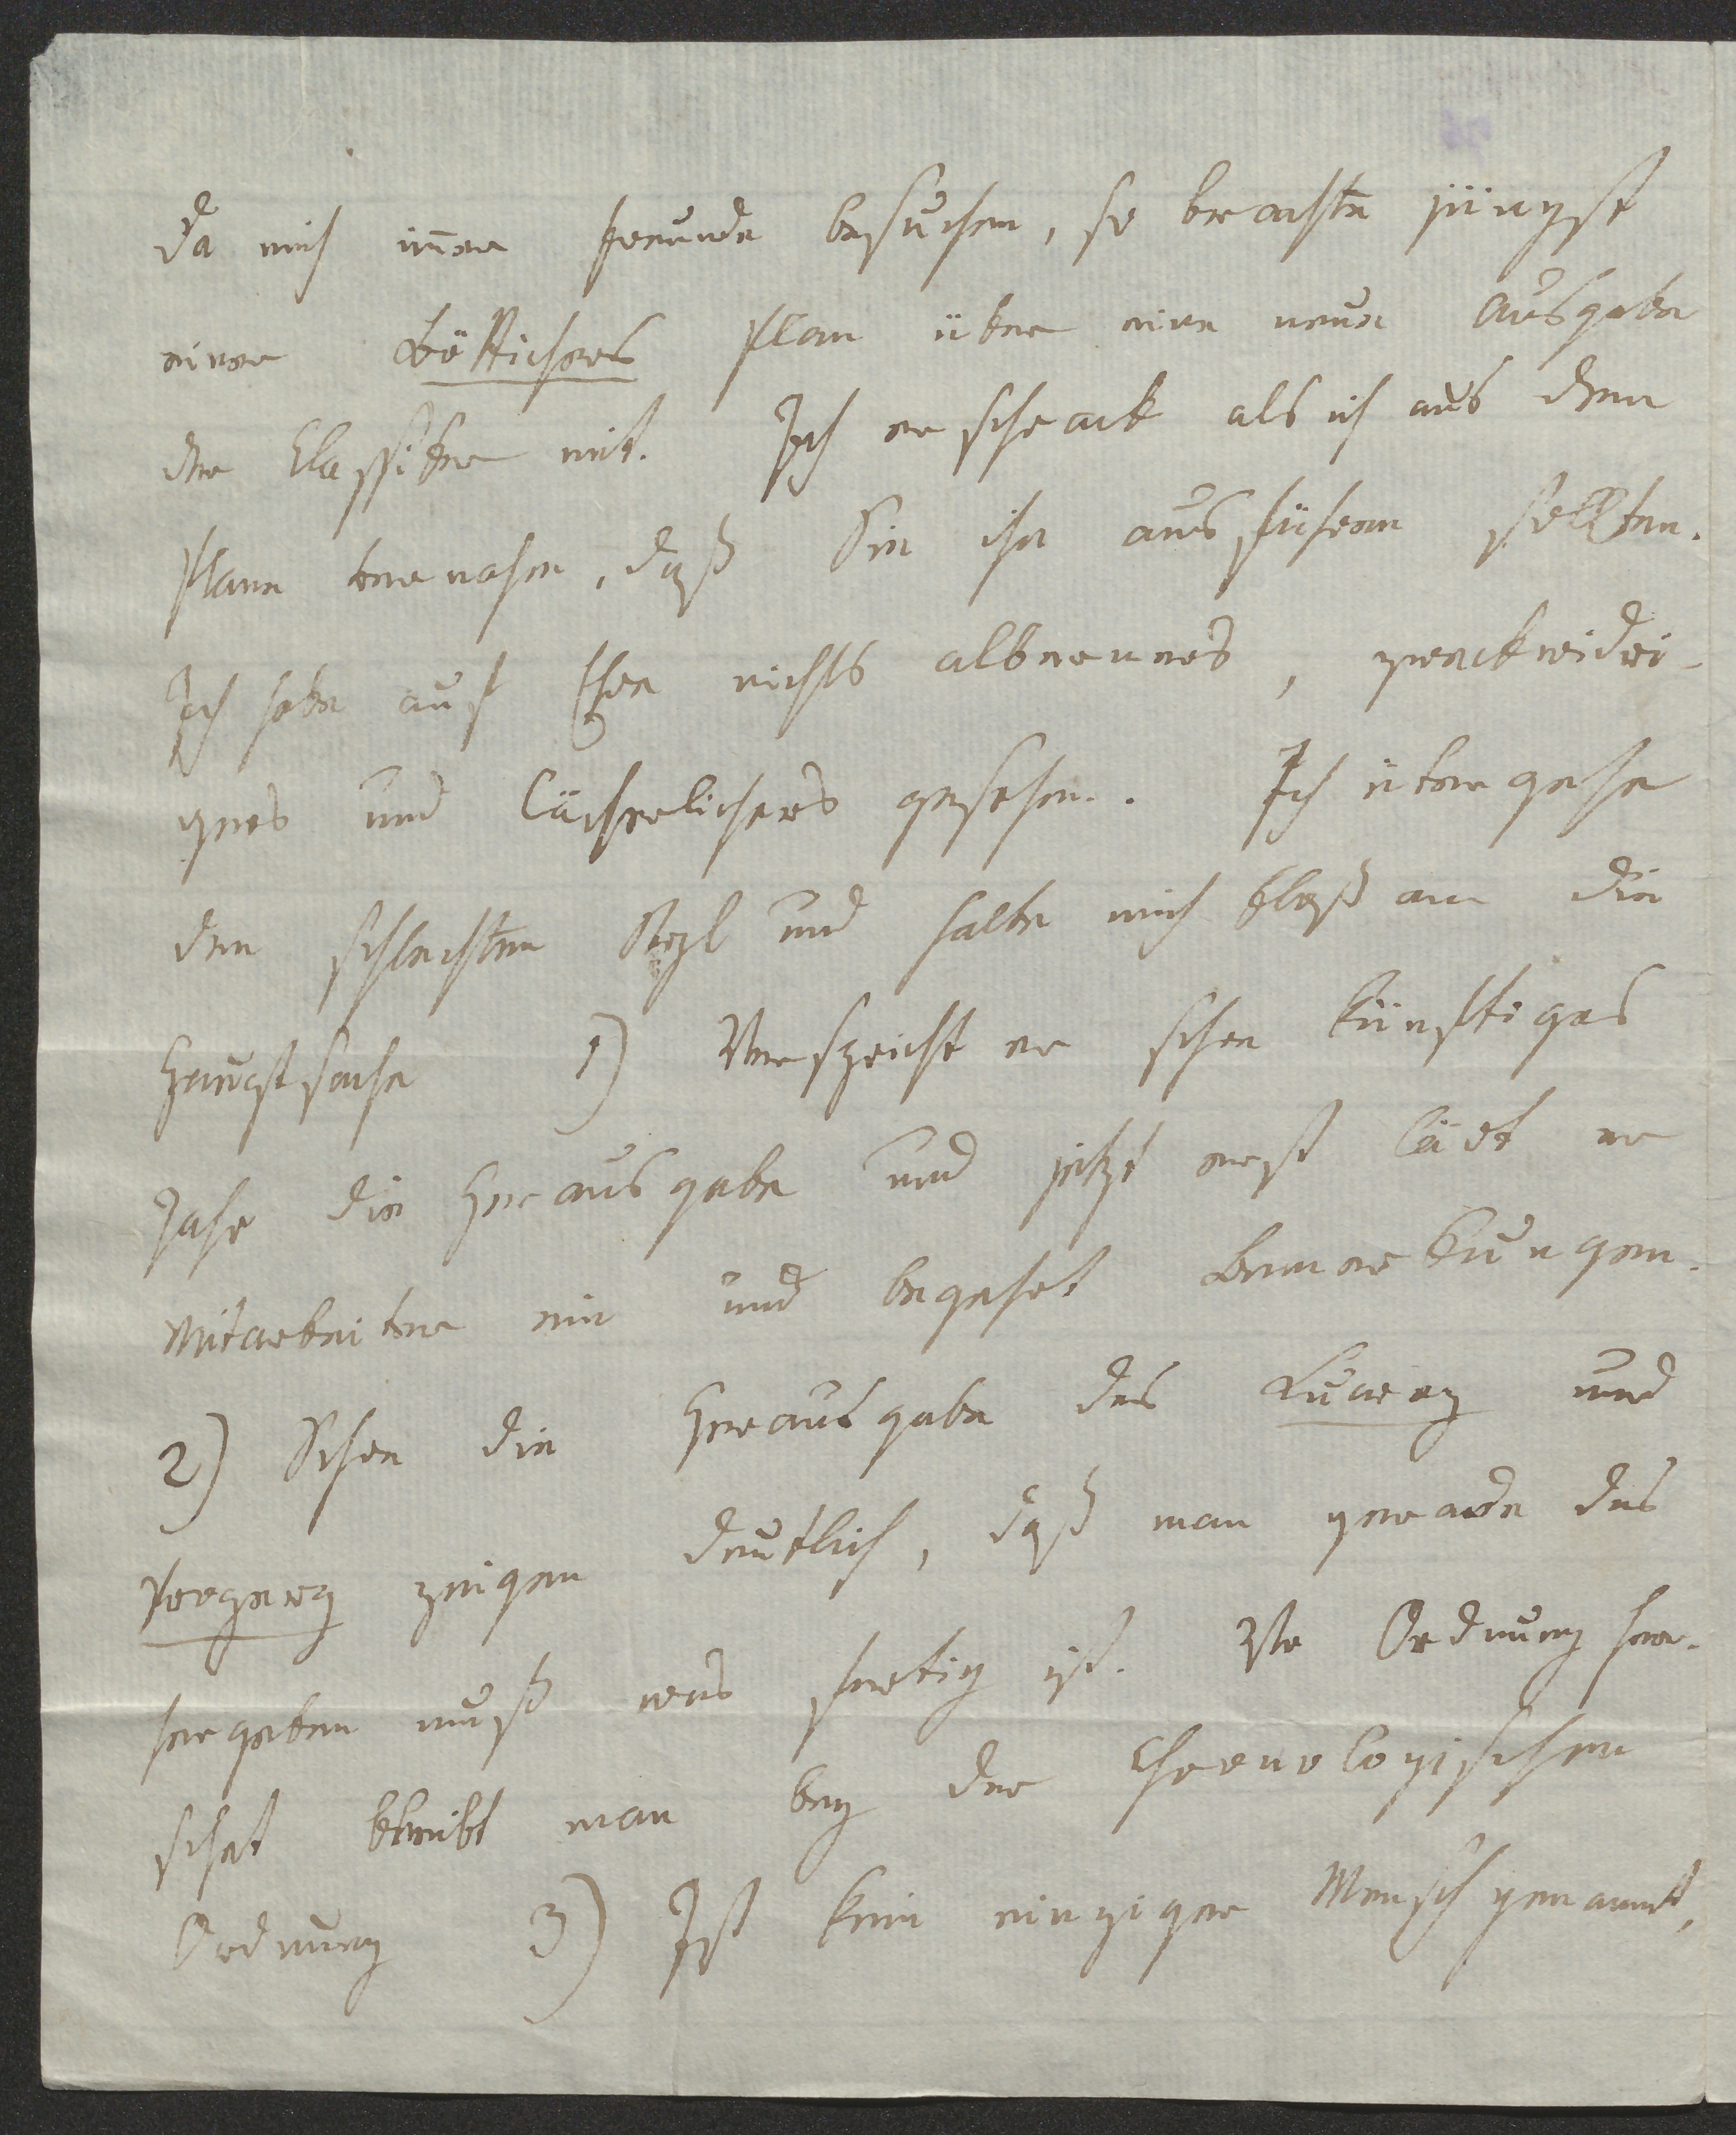 Da mich im̄er Freunde besuchen, so brachte jüngst
einer Böttichers Plan über eine neue Ausgabe
der Classiker mit. Ich erschrack als ich aus dem
Plane ersehen, daß Sie ihn ausführen sollten.
Ich habe auf Ehre nichts alberneres, zweckwidri-
geres und lächerlicheres gesehen. Ich übergehe
den schlechten Styl und halte mich bloß an die
Hauptsache 1) Verspricht er schon künftiges
Jahr die Herausgabe und jetzt erst läd't er
Mitarbeiter ein und begehrt Bemerkungen.
2) Schon die Herausgabe des und
zeigen deutlich, daß man gerade das
hergeben muß was fertig ist. Ordnung her-
schet bleibt man bey der Chronologischen
Ordnung 3) Ist kein einziger Mensch genannt,